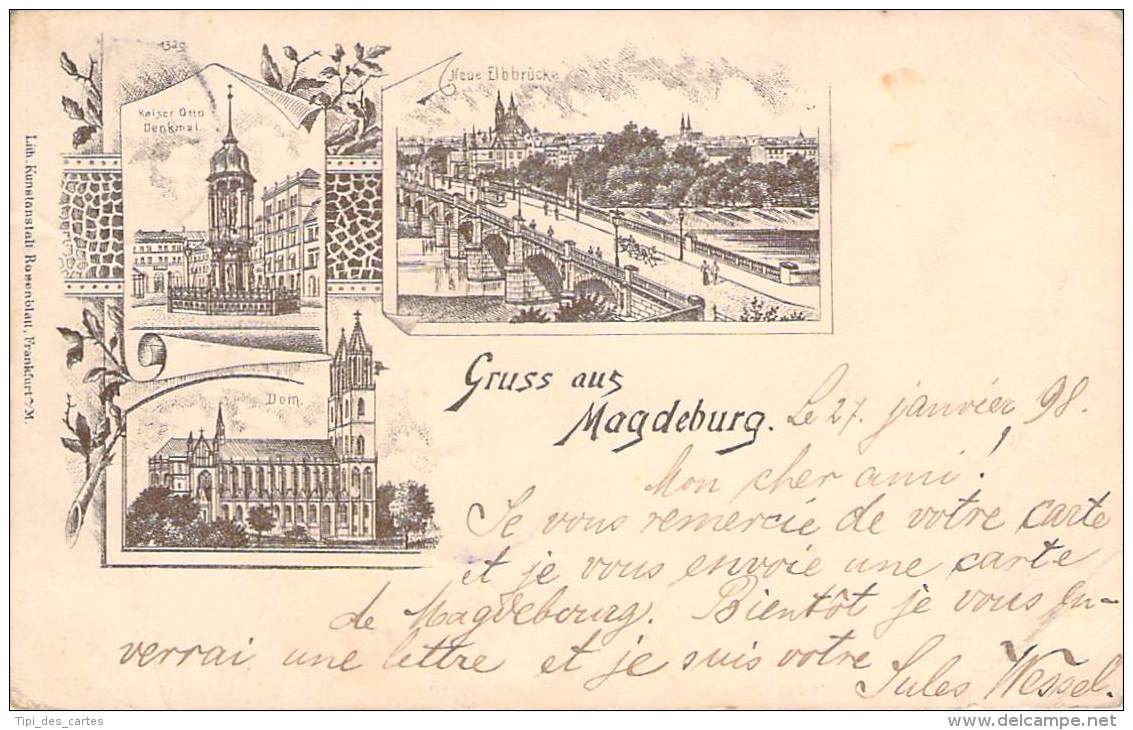 1329
Kaiser Otto
Denkmal
Neue Elbbrücke
Lith. Kunstanstalt Rosenblatt, Frankfurt a/M.
Dom.
Gruss aus
Magdeburg.
Le 27. janvier 98.
Mon cher ami!
Je vous remercie de votre carte
et je vous envoie une carte
de Magdebourg. Bientôt je vous en-
verrai une lettre et je suis votre
Jules Wessel.
Tipi_des_cartes
www.delcampe.net